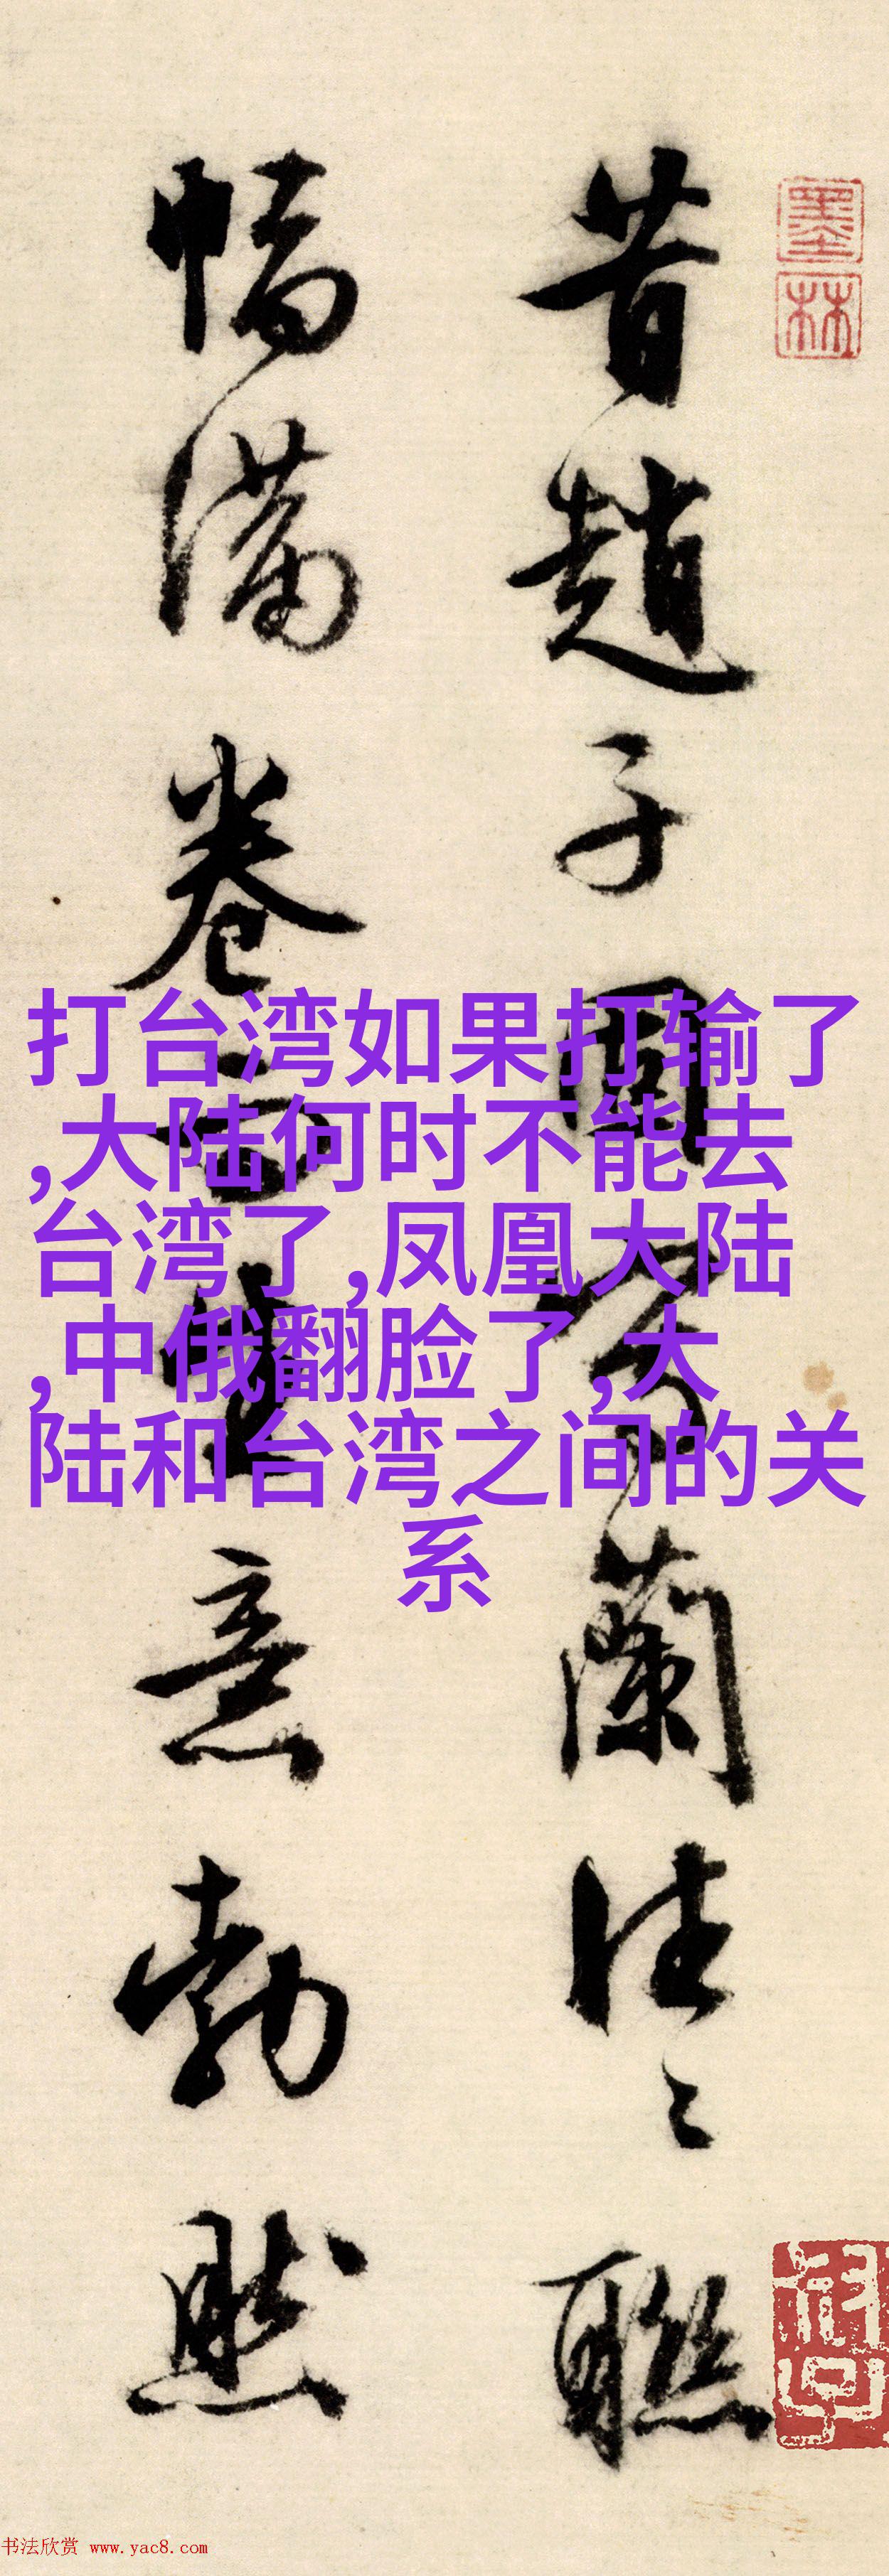 昔趙子固寫蘭往往聯
幅滿卷而生意勃然
墨
林
打台湾如果打输了
,大陆何时不能去
台湾了,凤凰大陆
,中俄翻脸了,大
陆和台湾之间的关
系
书法欣赏 www.yac8.com